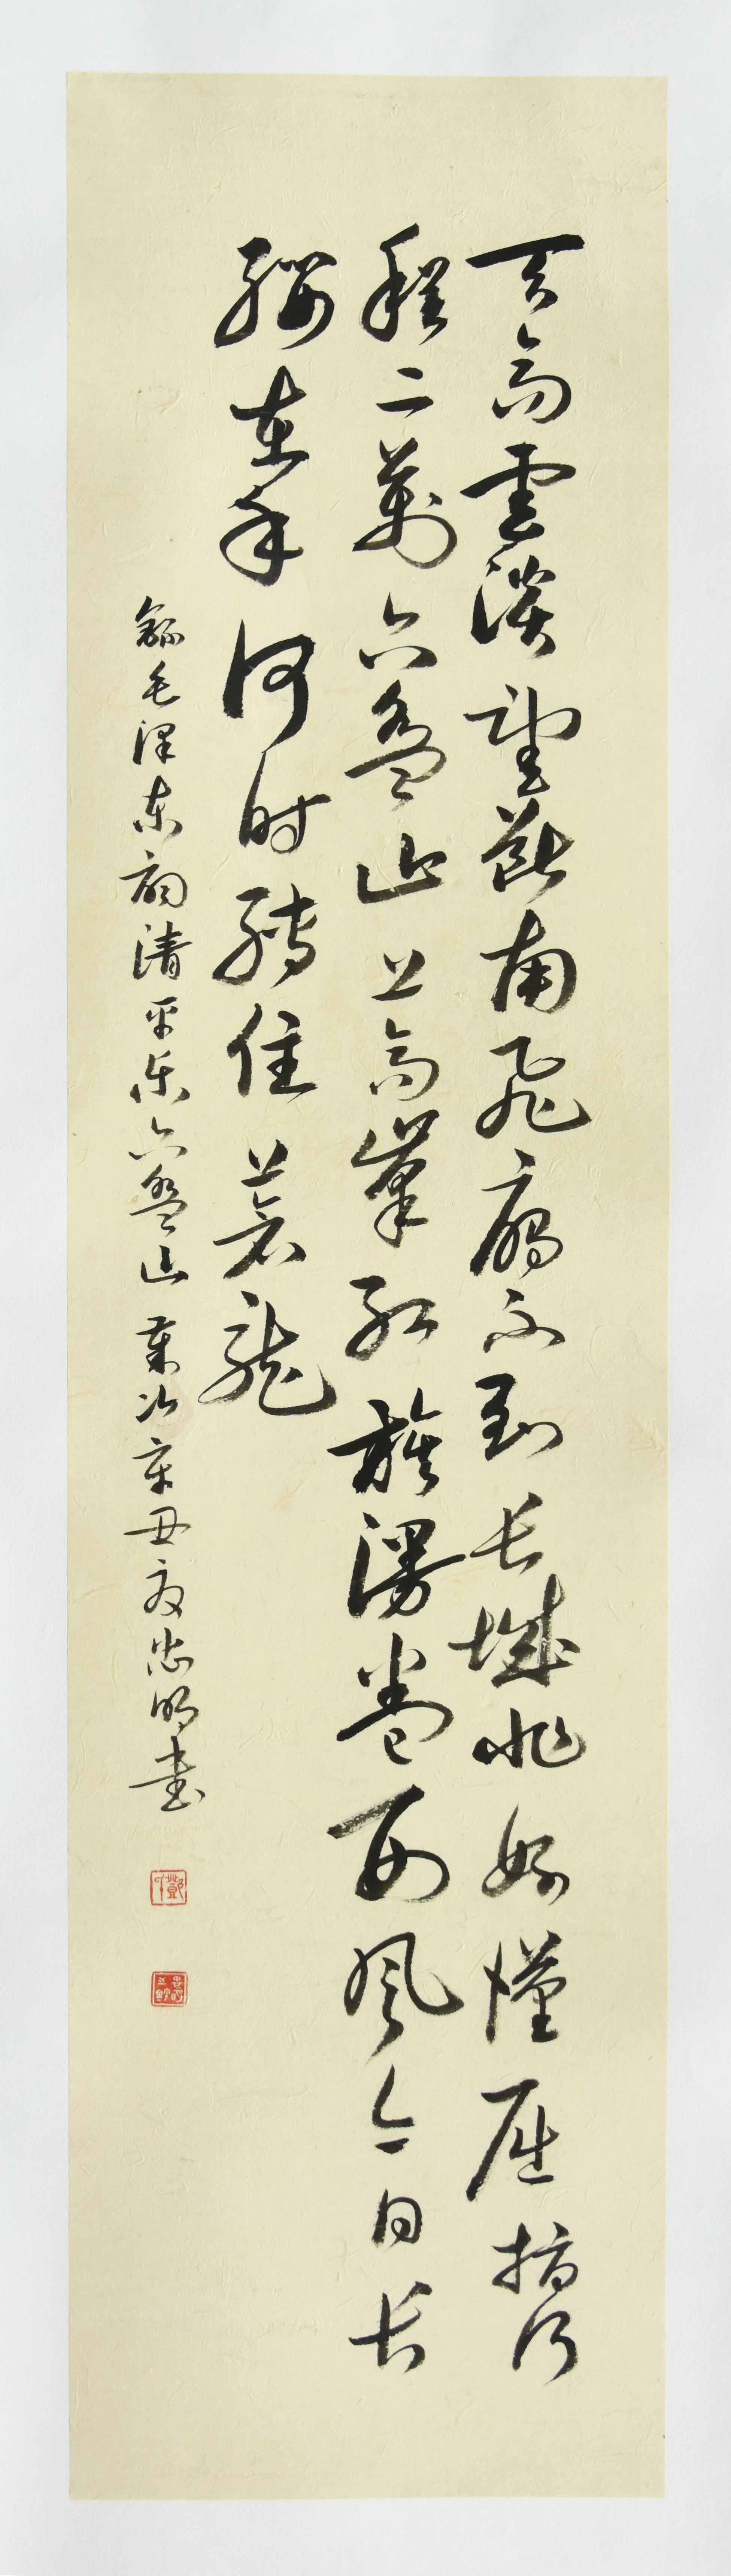 天高雲淡望断南飞雁不到长城非好漢屈指行
程二萬六盘山上高峰红旗漫卷西风今日长
缨在手何时缚住苍龙
録毛泽东词清平乐六盘山歲次辛丑夏忠明书